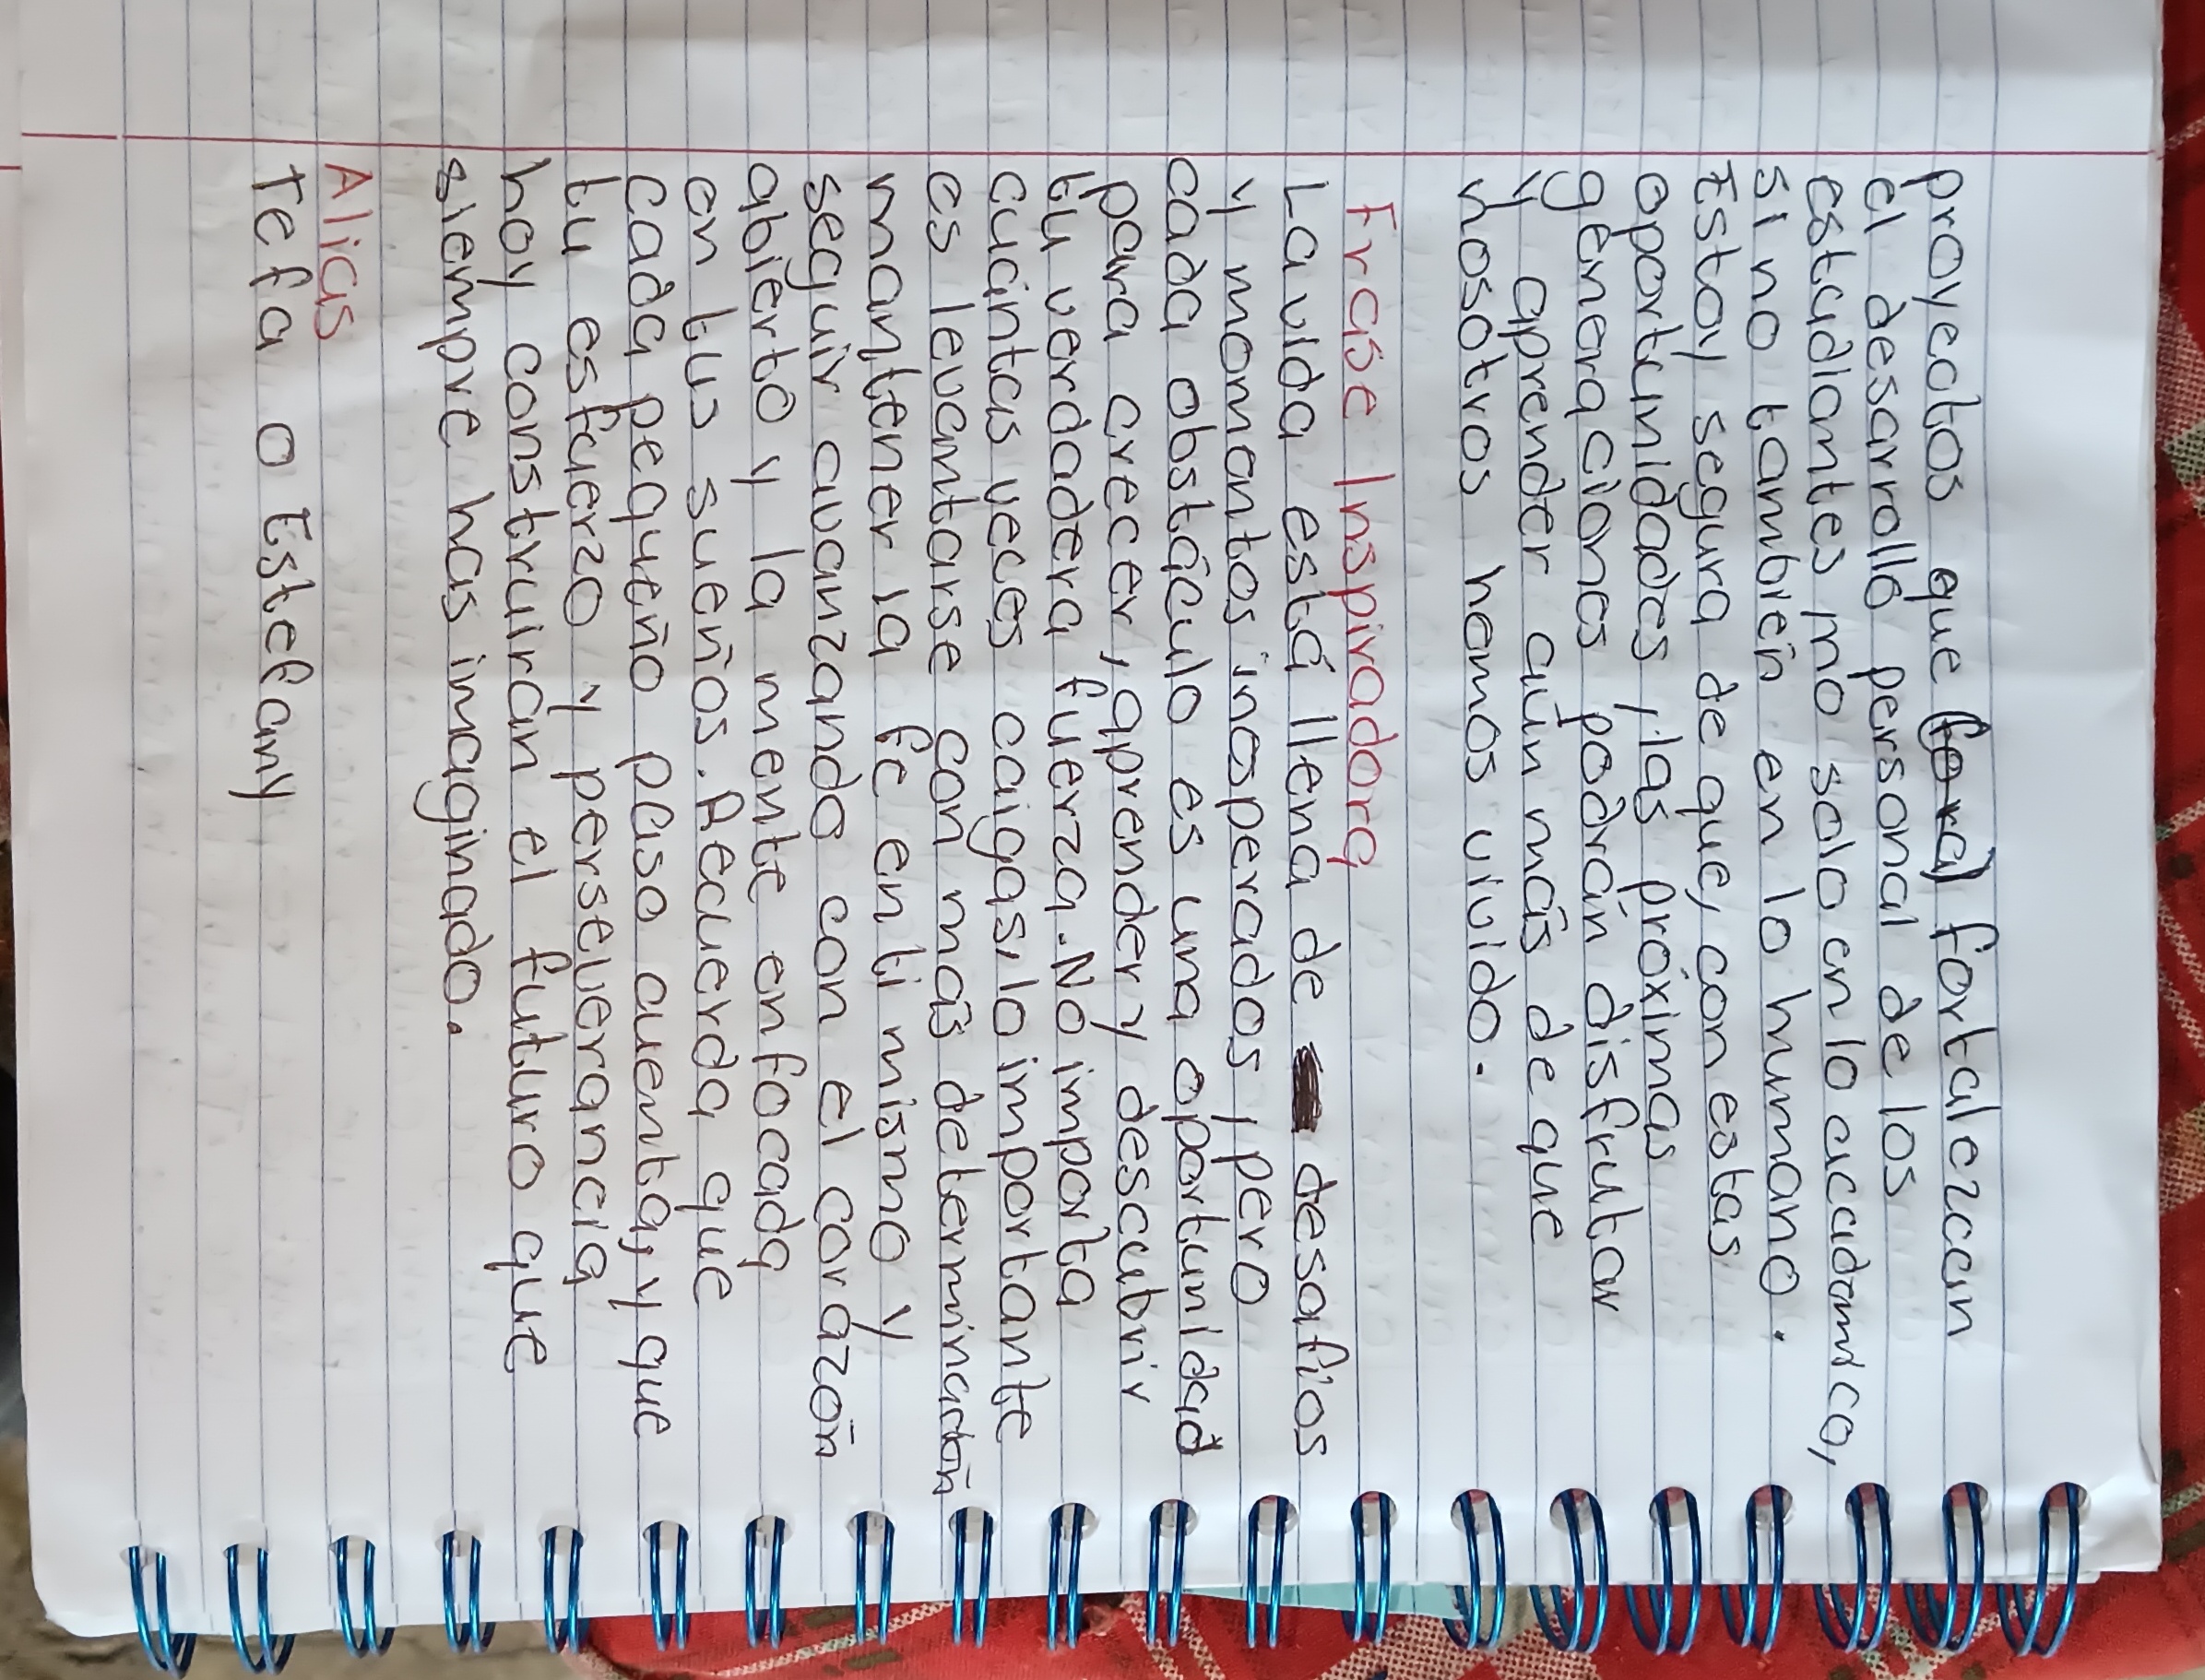 proyectos que fortalezcan
el desarrollo personal de los
estudiantes, no solo en lo academico,
sino también en lo humano.
Estoy segura de que, con estas
oportunidades, las próximas
generaciones podrán disfrutar
y aprender aún más de que
nosotros hemos vivido.
Frase Inspiradora
La vida está llena de desafios
y momentos inesperados, pero
cada obstáculo es una oportunidad
para crecer, aprender y descubrir
tu verdadera fuerza. No importa
cuántas veces caigas, lo importante
es levantarse con más determinación
mantener la fe en ti mismo y
seguir avanzando con el corazón
abierto y la mente enfocada
en tus sueños. Recuerda que
cada pequeño paso cuenta, y que
tu esfuerzo y perseverancia
hoy construirán el futuro que
siempre has imaginado.
Alias
Tefa o Estefany